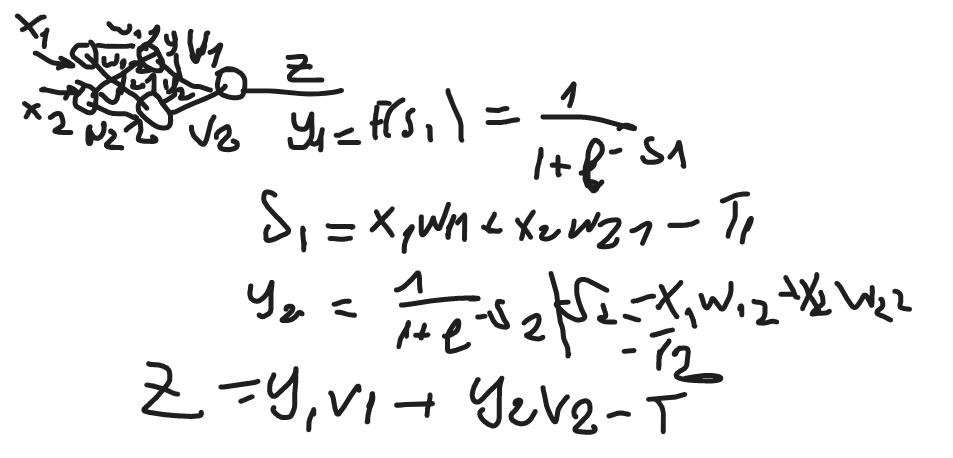 x₁ w₁₁ y₁ V₁
w₁₂ w₂₁ y₂ z
x₂ w₂₂ V₂
y₁ = F(s₁) = 1 / (1 + e^(-s₁))
S₁ = x₁w₁₁ + x₂w₂₁ - T₁
y₂ = 1 / (1 + e^(-s₂)) | S₂ = x₁w₁₂ + x₂w₂₂ - T₂
z = y₁v₁ + y₂v₂ - T